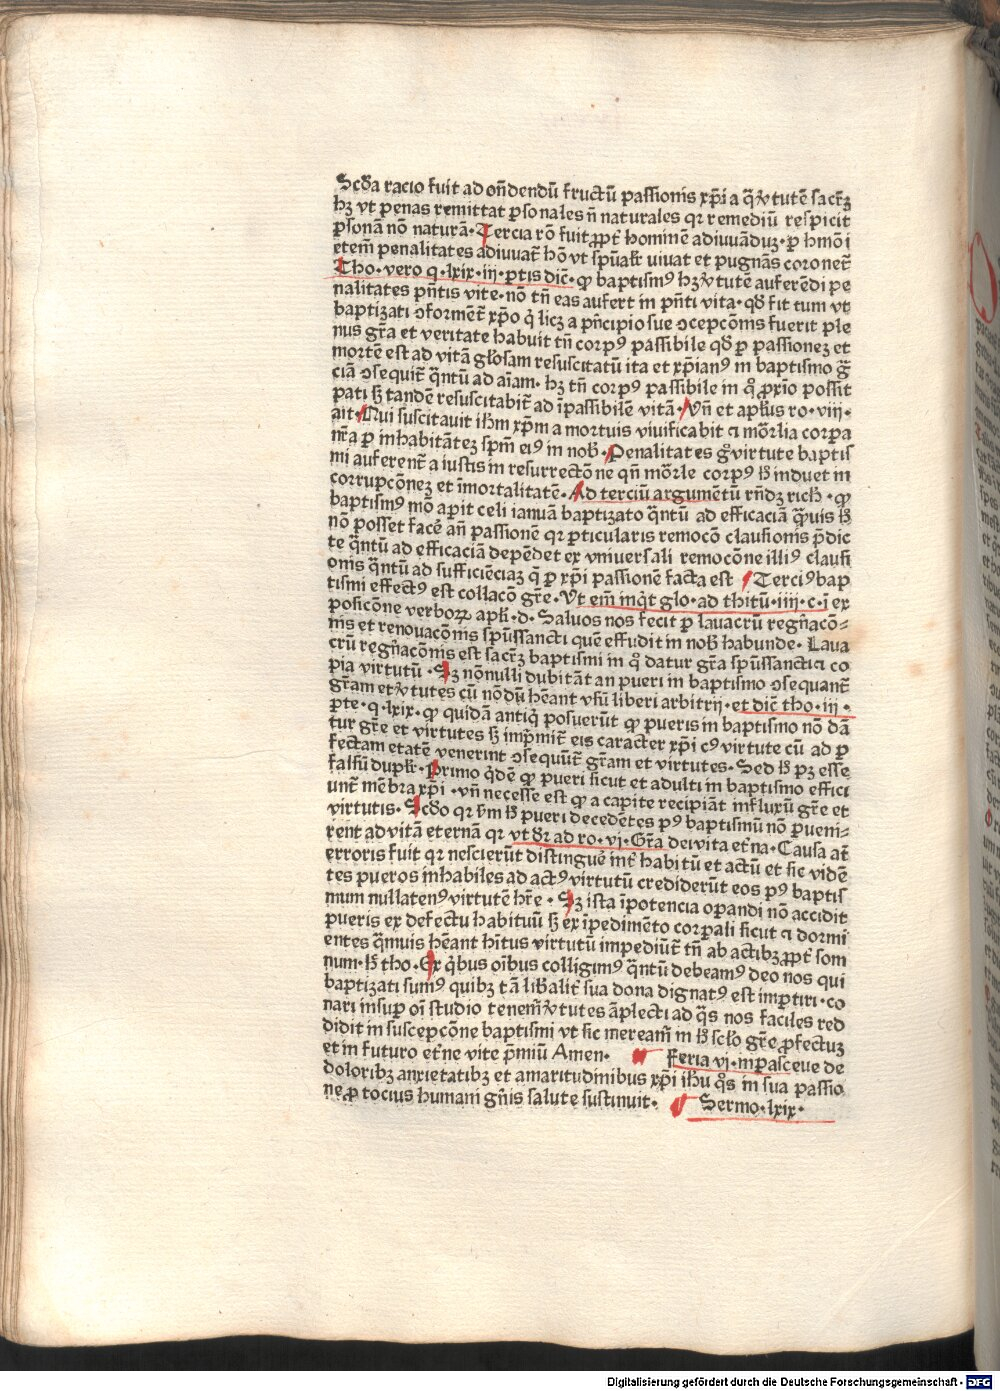 Scďa racio fuit ad on̄dendū fructū passionis xp̄i a q̄ v̓tutē sacr̄ꝫ
hꝫ vt penas remittat ꝑsonales n̄ naturales qꝛ remediū respicit
ꝑsonā nō naturā· Tercia rō fuit ꝓpt̓ hominē adiuuāduꝫ· ꝑ hm̄oi
etem̄ penalitates adiuuat̄ hō vt spūalr̓ viuat et pugnās coronet̄
Tho· vero q· lxix· iij· ꝑtis dic̄· ꝙ baptismꝰ hꝫ v̓tutē auferēdi pe
nalitates pn̄tis vite· nō tn̄ eas aufert in pn̄ti vita· qď fit tum vt
baptizati ɔforment̄ xp̄o q̇ licꝫ a pn̄cipio sue ɔcepcōnis fuerit ple
nus gr̄a et veritate habuit tn̄ corpꝰ passibile qď ꝑ passioneꝫ et
mortē est ad vitā gl̓osam resuscitatū ita et xp̄ianꝰ in baptismo gr̄
ciā ɔsequit̄ q̄ntū ad aīam· hꝫ tn̄ corpꝰ passibile in q̊ ꝓ xp̄o possit
pati sꝫ tandē resuscitabit̄ ad īpassibilē vitā· Vn̄ et apl̓us ro· viij·
ait· Qui suscitauit ih̄m xp̄m a mortuis viuificabit ⁊ mōrlia corpa
nr̄a ꝑ inhabitāteꝫ spm̄ eiꝰ in nob̓· Penalitates g̊ virtute baptis
mi auferent̄ a iustis in resurrectōne qn̄ mōrle corpꝰ h̓ induet in
corrupcōneꝫ et īmortalitatē· Ad terciū argumētū rn̄dꝫ rich̓· ꝙ
baptismꝰ mō aꝑit celi ianuā baptizato q̄ntū ad efficaciā q̄uis h̓
nō posset facē an̄ passionē qꝛ ꝑticularis remocō clausionis p̄dic
te q̄ntū ad efficaciā depēdet ex vniuersali remocōne illiꝰ clausi
onis q̄ntū ad sufficiēciaꝫ q̄ ꝑ xp̄i passionē facta est Terciꝰ bap
tismi effectꝰ est collacō gr̄e· Vt em̄ inq̇t glo· ad thitū· iiij· c· i ex
posicōne verboꝝ apl̓i· d· Saluos nos fecit ꝑ lauacrū regn̄acō-
nis et renouacōnis spūssancti quē effudit in nob̓ habunde· Laua
crū regn̄acōnis est sacr̄ꝫ baptismi in q̊ datur gr̄a spūssancti ⁊ co
pia virtutū· Sꝫ nōnulli dubitāt an pueri in baptismo ɔsequant̄
gr̄am et v̓tutes cū nōdū hēant vsū liberi arbitrij· et dic̄ tho· iij·
ꝑte· q· lxix· ꝙ quidā antiq̇ posuerūt ꝙ pueris in baptismo nō dā
tur gr̄e et virtutes sꝫ imp̄mit̄ eis caracter xp̄i cꝰ virtute cū ad ꝑ
fectam etatē venerint ɔsequūt̄ gr̄am et virtutes· Sed h̓ pꝫ esse
falsū duplr̓· Primo q̇dē ꝙ pueri sicut et adulti in baptismo effici
unt̄ mēbra xp̄i· vn̄ necesse est ꝙ a capite recipiāt influxū gr̄e et
virtutis· Scďo qꝛ s̄m h̓ pueri decedētes pꝰ baptismū nō ꝑueni-
rent ad vitā eternā qꝛ vt dr̓ ad ro· vi· Gr̄a dei vita et̓na· Causa at̄
erroris fuit qꝛ nescierūt distinguē int̓ habitū et actū et sic vidē
tes pueros inhabiles ad actꝰ virtutū crediderūt eos pꝰ baptis
mum nullatenꝰ virtutē hr̄e· Sꝫ ista īpotencia oꝑandi nō accidit
pueris ex defectu habituū sꝫ ex īpedimēto corꝑali sicut ⁊ dormi
entes q̄muis hēant hītus virtutū impediūt̄ tn̄ ab actibꝫ ꝓpt̓ som
num· h̓ tho· Ex q̇bus oībus colligimꝰ q̄ntū debeamꝰ deo nos qui
baptizati sumꝰ quibꝫ tā lib̓alit̓ sua dona dignatꝰ est imꝑtiri· co
nari insuꝑ oī studio tenemr̓ v̓tutes āplecti ad q̄s nos faciles red
didit in suscepcōne baptismi vt sic mereamr̓ in h̓ scl̓o gr̄e ꝓfectuꝫ
et in futuro et̓ne vite p̄miū Amen· Feria vi· in pasceue de
doloribꝫ anxietatibꝫ et amaritudinibus xp̄i ih̄u q̄s in sua passio
ne ꝓ tocius humani gn̄is salute sustinuit· Sermo· lxix·
Digitalisierung gefördert durch die Deutsche Forschungsgemeinschaft - DFG